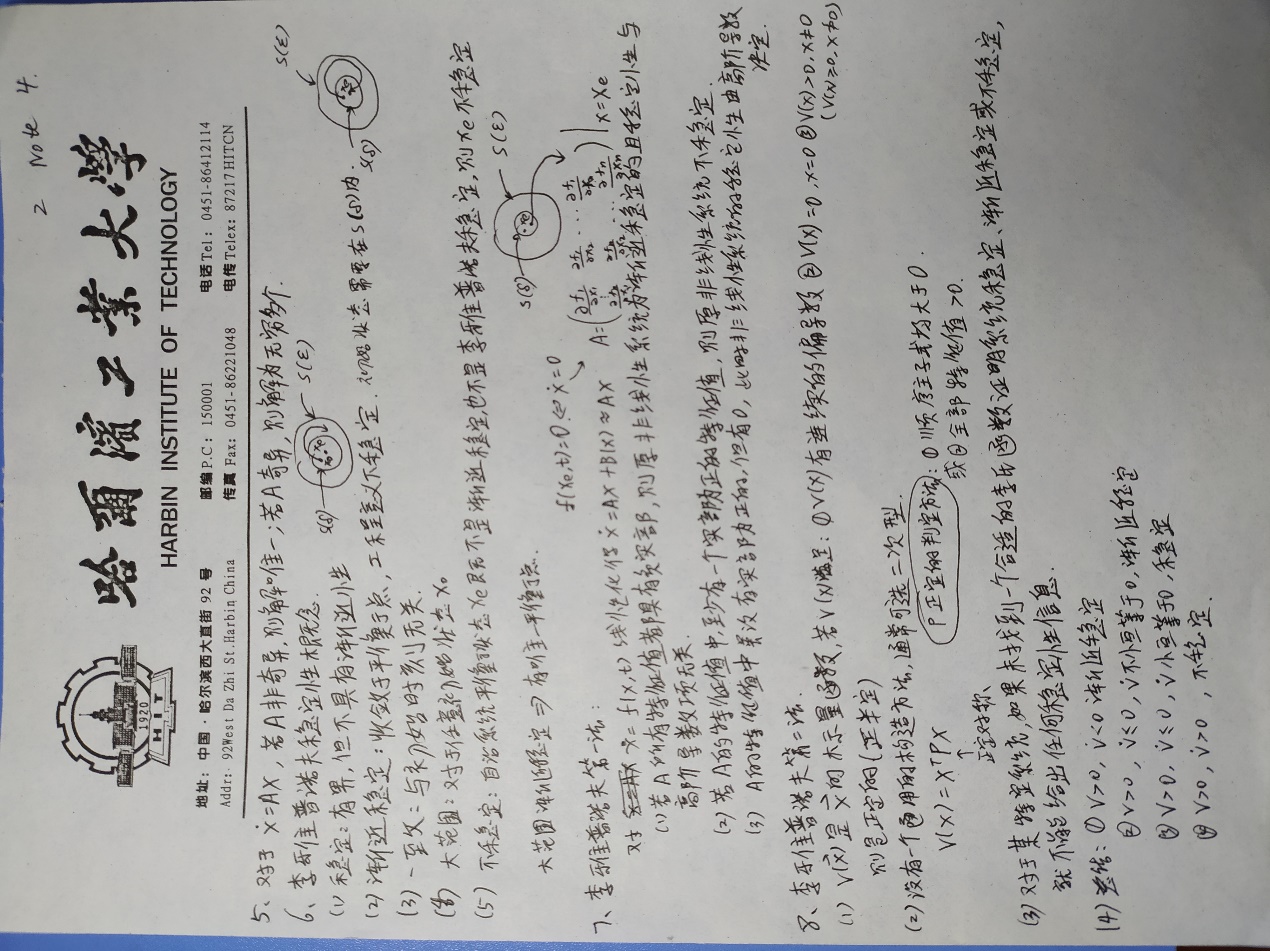 2 Note 4.
1920
HIT
哈爾濱工業大學
HARBIN INSTITUTE OF TECHNOLOGY
地址：中国·哈尔滨西大直街 92 号 邮编 P.C： 150001 电话 Tel： 0451-86412114
Addr: 92West Da Zhi St.Harbin China 传真 Fax: 0451-86221048 电传 Telex: 87217 HITCN
5、对于 ẋ=AX，若A非奇异，则解唯一；若A奇异，则解为无穷多个.
6、李雅普诺夫稳定性概念.
S(δ) S(ε)
S(ε)
(1) 稳定：有界，但不具有渐近性
(2) 渐近稳定：收敛于平衡点，工程意义下稳定. 初始状态需要在S(δ)内. S(δ)
(3) 一致：与初始时刻无关.
(4) 大范围：对于任意初始状态x₀
(5) 不稳定：自治系统平衡状态Xe既不是渐近稳定,也不是李雅普诺夫稳定,则Xe不稳定
S(δ) S(ε)
大范围渐近稳定 ⇒ 有唯一平衡点.
f(xe,t)=0 ⇔ ẋ=0
7、李雅普诺夫第一法：
A=(∂f₁/∂x₁ ∂f₁/∂x₂ ··· ∂f₁/∂xₙ
∂f₂/∂x₁ ∂f₂/∂x₂ ... ∂fₙ/∂xₙ)|x=xe
对 ẋ=f(x,t) 线性化得 ẋ=AX+B(x)≈AX
(1) 若A所有特征值都具有负实部，则原非线性系统为渐近稳定的且稳定性与
高阶导数项无关.
(2) 若A的特征值中,至少有一个实部为正的特征值，则原非线性系统不稳定.
(3) A的特征值中虽没有实部为正的,但有0，此时非线性系统的稳定性由高阶导数
决定.
8、李雅普诺夫第二法.
(1) V(x⃗)是x⃗的标量函数,若V(x)满足：①V(x)有连续的偏导数 ②V(x)=0, x=0 ③V(x)>0, x≠0
(V(x)≥0, x≠0)
则是正定的(正半定)
(2) 没有一个通用的构造方法,通常可选二次型.
V(x)=XᵀPX P正定的判定方法：① 顺序主子式均大于0.
↑ 或② 全部特征值>0.
正定对称
(3) 对于某特定系统,如果未找到一个合适的李氏函数证明系统稳定、渐近稳定或不稳定，
就不能给出任何稳定性信息.
(4) 总结：① V>0, V̇<0 渐近稳定
② V>0, V̇≤0, V̇不恒等于0, 渐近稳定
③ V>0, V̇≤0, V̇恒等于0, 稳定
④ V>0, V̇>0 , 不稳定.